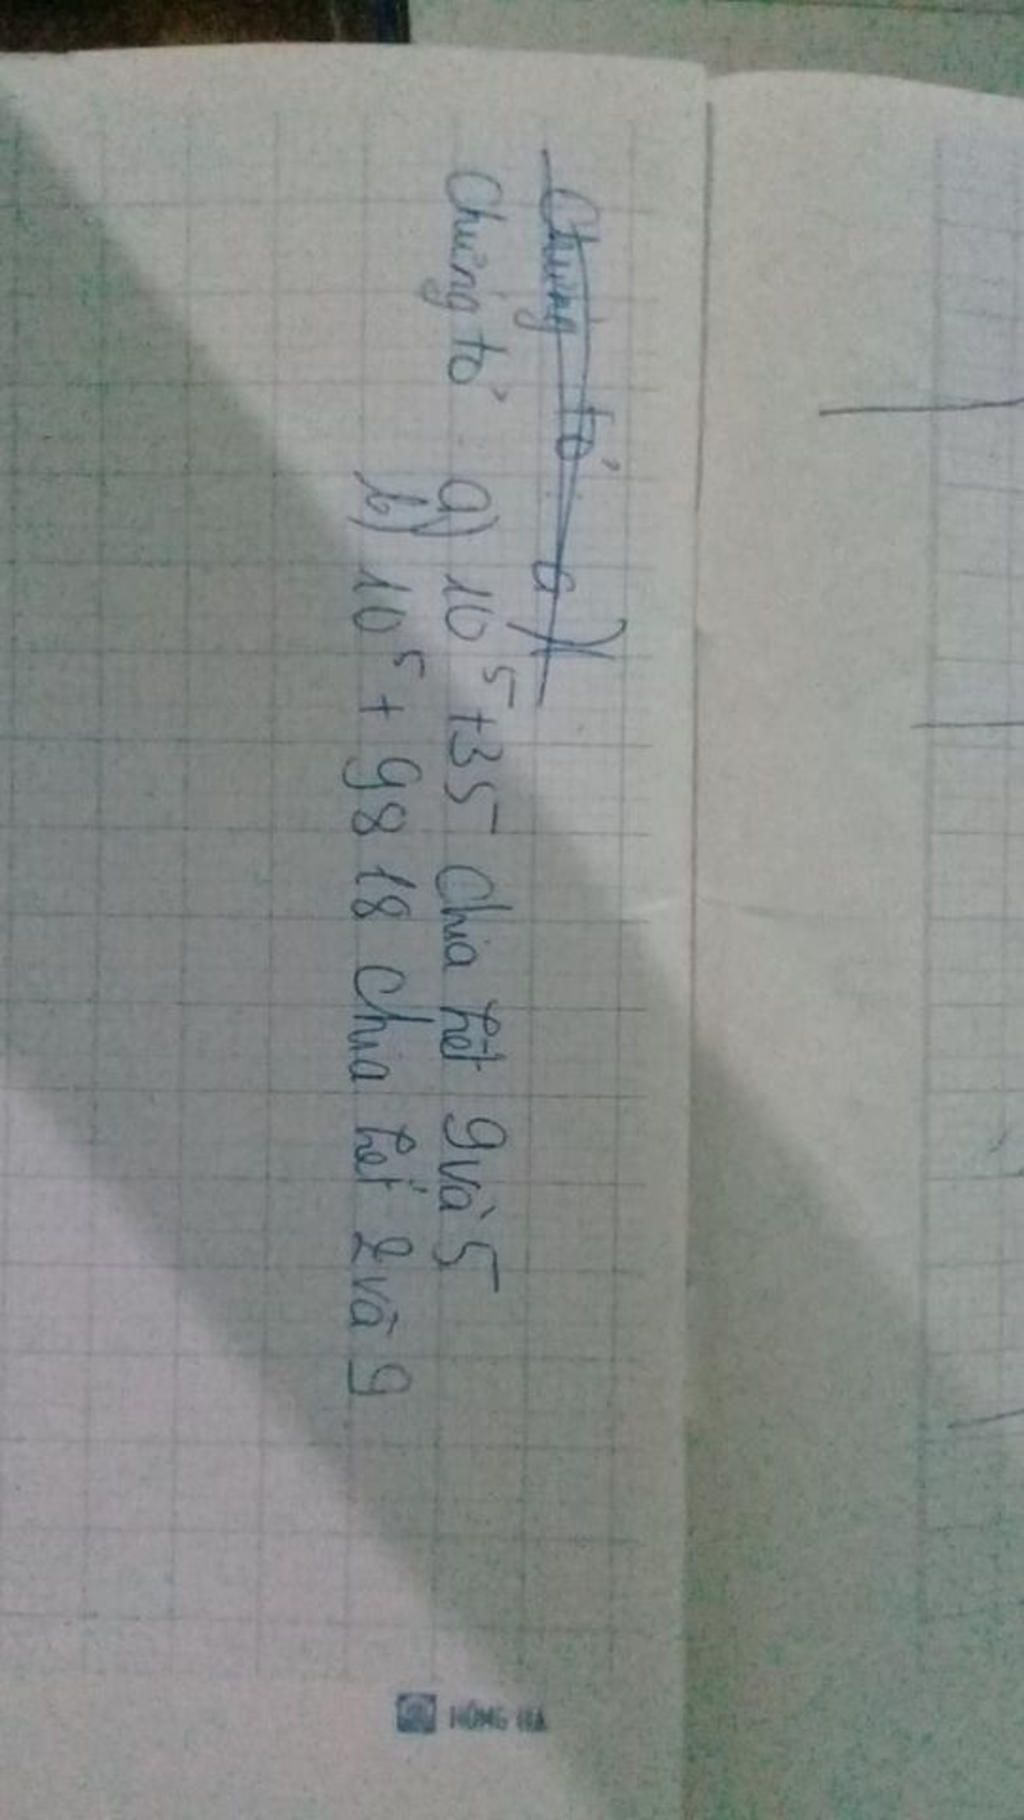 Chứng tỏ : a)
Chứng tỏ : a) 10⁵ + 35 chia hết 9 và 5
b) 10⁵ + 98 18 chia hết 2 và 9
HỒNG HÀ